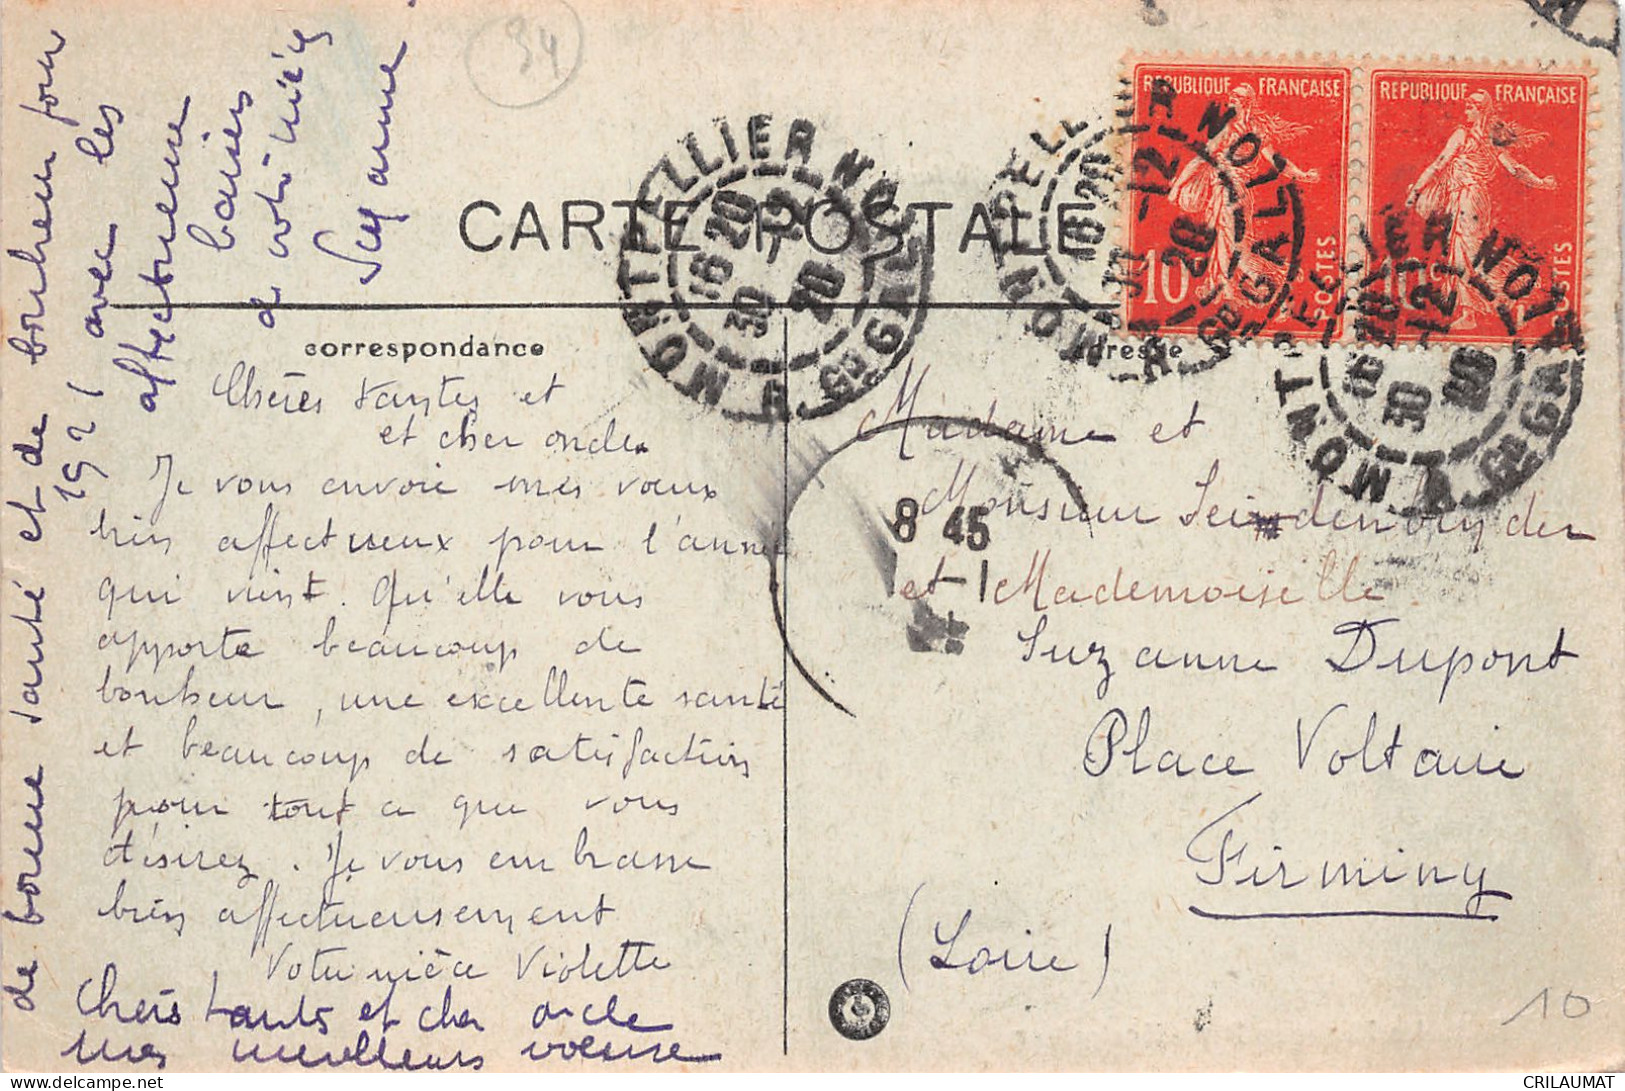 34
CARTE POSTALE
correspondance
Adresse
RÉPUBLIQUE FRANÇAISE
10
POSTES
REPUBLIQUE FRANÇAISE
10
POSTES
MONTPELLIER
GARE
16 20
30 12
20
MONTPELLIER
GARE
16 20
30 -12
20
MONTPELLIER
GARE
16 20
30 -12
20
8 45
1
Chères tantes et
et cher oncle.
Je vous envoie mes vœux
bien affectueux pour l'année
qui vient. Qu'elle vous
apporte beaucoup de
bonheur, une excellente santé
et beaucoup de satisfaction
pour tout ce que vous
désirez. Je vous embrasse
bien affectueusement
Votre nièce Violette
Chers tantes et cher oncle
mes meilleurs voeuxe
de bonne santé et de bonheur pour
1921 avec les
affectueuse
baisers
de votre nièce
Suzanne
Madame et
Monsieur
et Mademoiselle
Suzanne Dupont
Place Voltaire
Firminy
(Loire)
10
CRILAUMAT